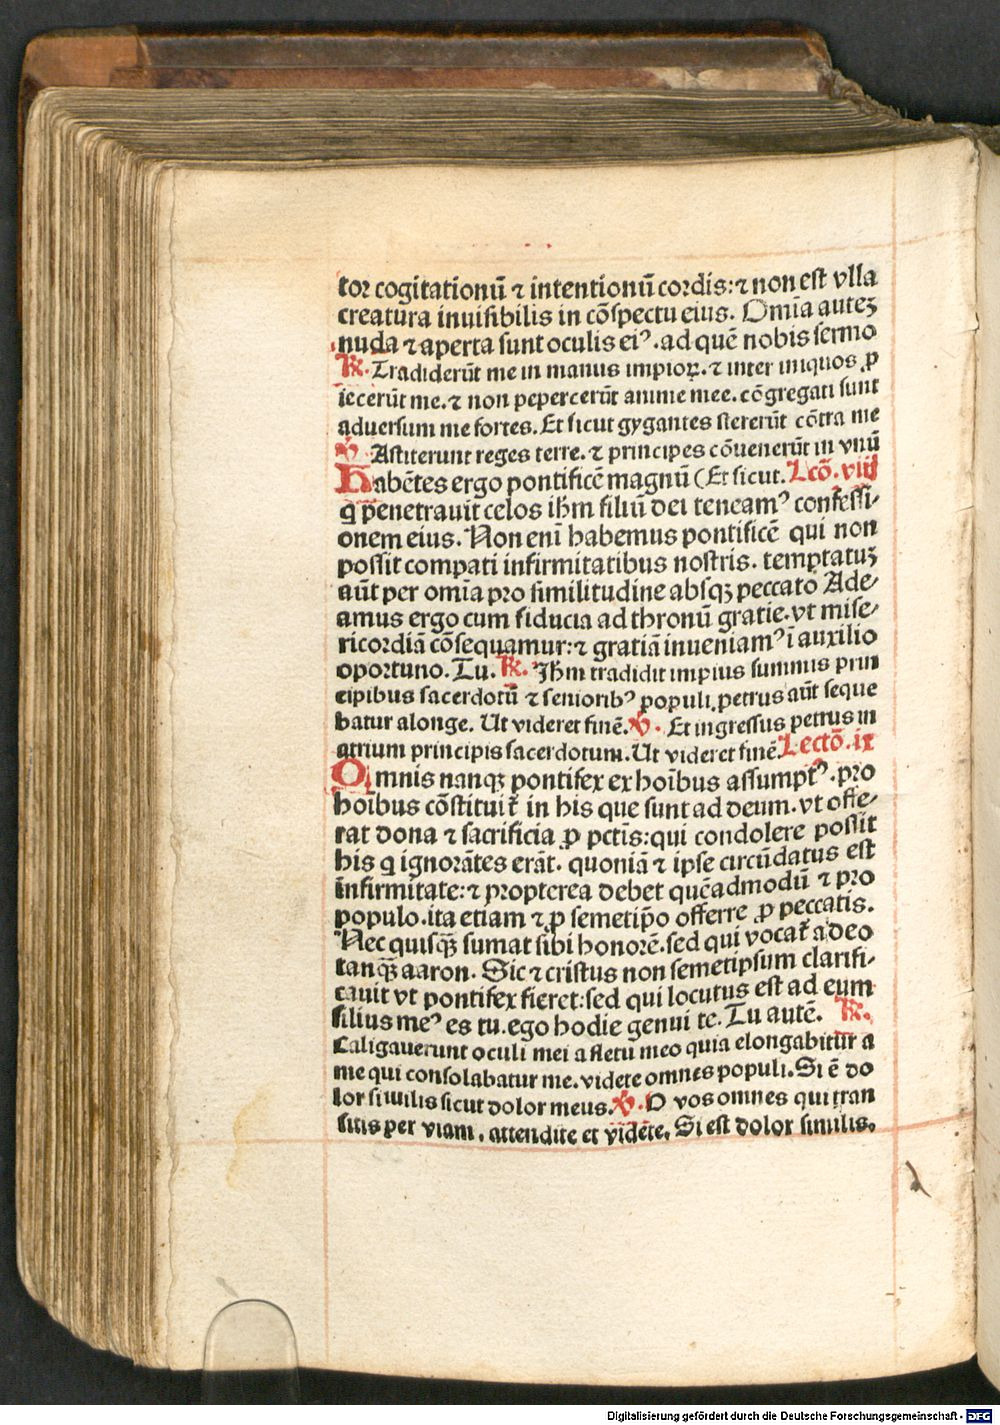 tor cogitationū ⁊ intentionū cordis:⁊ non est vlla
creatura inuisibilis in cōspectu eius. Omīa auteꝫ
nuda ⁊ aperta sunt oculis eiꝰ. ad quē nobis sermo
℟. Tradiderūt me in manus impioꝝ. ⁊ inter iniquos ꝓ
iecerūt me. ⁊ non pepercerūt anime mee. cōgregati sunt
aduersum me fortes. Et sicut gygantes steterūt cōtra me
℣. Astiterunt reges terre. ⁊ principes cōuenerūt in vnū
Habētes ergo pontificē magnū (Et sicut. Lcō. viij
q penetrauit celos ihm filiū dei teneamꝰ confessi-
onem eius. Non enī habemus pontificē qui non
possit compati infirmitatibus nostris. temptatuꝫ
aūt per omīa pro similitudine absqꝫ peccato Ade-
amus ergo cum fiducia ad thronū gratie. vt mise-
ricordiā cōsequamur:⁊ gratiā inueniamꝰ ī auxilio
oportuno. Tu. ℟. Ihm tradidit impius summis prin
cipibus sacerdotū ⁊ senioribꝰ populi. petrus aūt seque
batur alonge. Ut videret finē. ℣. Et ingressus petrus in
atrium principis sacerdotum. Ut videret finē. Lectō. ix
Omnis nanqꝫ pontifex ex hoībus assumptꝰ. pro
hoībus cōstituit̄ in his que sunt ad deum. vt offe-
rat dona ⁊ sacrificia ꝓ pctīs: qui condolere possit
his q ignorātes erāt. quoniā ⁊ ipse circūdatus est
infirmitate: ⁊ propterea debet quēadmodū ⁊ pro
populo. ita etiam ⁊ ꝓ semetip̄o offerre ꝓ peccatis.
Nec quisqꝫ̄ sumat sibi honorē. sed qui vocat̄ a deo
tanqꝫ̄ aaron. Sic ⁊ cristus non semetipsum clarifi-
cauit vt pontifex fieret: sed qui locutus est ad eum
filius meꝰ es tu. ego hodie genui te. Tu autē. ℟.
Caligauerunt oculi mei a fletu meo quia elongabitur a
me qui consolabatur me. videte omnes populi. Si ē do
lor similis sicut dolor meus. ℣. O vos omnes qui tran
sitis per viam. attendite et videte. Si est dolor similis.
Digitalisierung gefördert durch die Deutsche Forschungsgemeinschaft - DFG